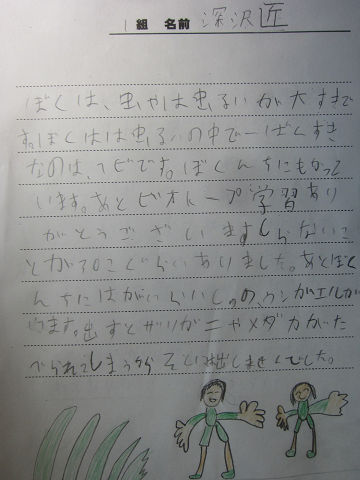 1組 名前 深沢匠
ぼくは、虫やは虫るいが大すきで
す。ぼくはは虫るいの中で一ばんすき
なのは、ヘビです。ぼくんちにもかって
います。あとビオトープ学習あり
がとうございますしらないこ
とが70こぐらいありました。あとぼく
んちにはがいらいしゅの、ウシガエルが
います。出すとザリガニやメダカがた
べられてしまうから そとに出しませんでした。